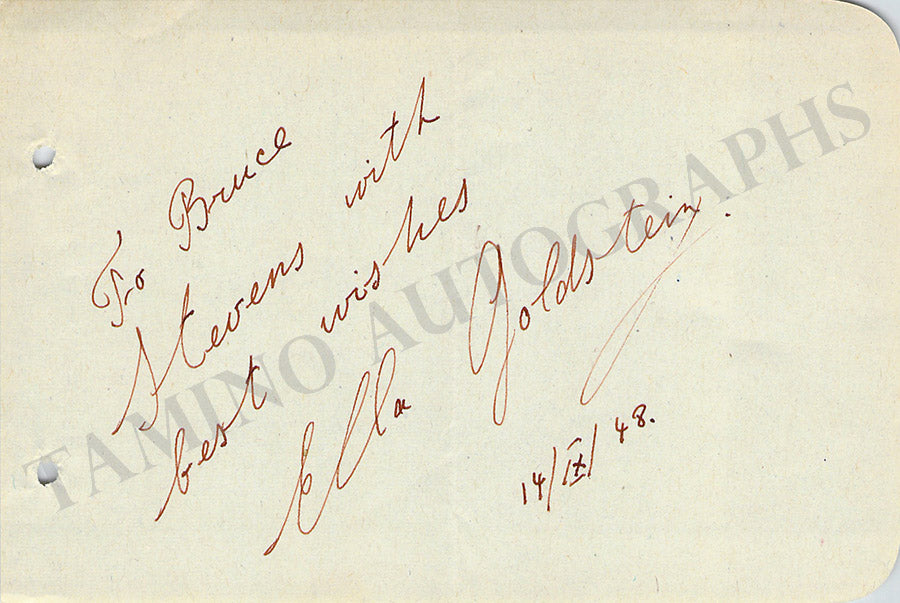 To Bruce
Stevens with
best wishes
Ella Goldstein.
14/IX/48.
TAMINO AUTOGRAPHS